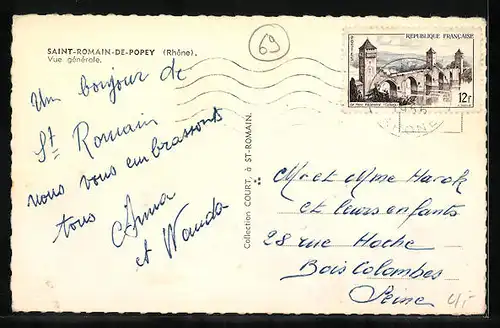 SAINT-ROMAIN-DE-POPEY (Rhône).
Vue générale.
69
RÉPUBLIQUE FRANÇAISE
12f
Un bonjour de
St Romain
nous vous embrassons
tous
Anna
et Wanda
Collection COURT, à ST-ROMAIN.
Mr et Mme Harok
et leurs enfants
28 rue Hoche
Bois Colombes
Seine